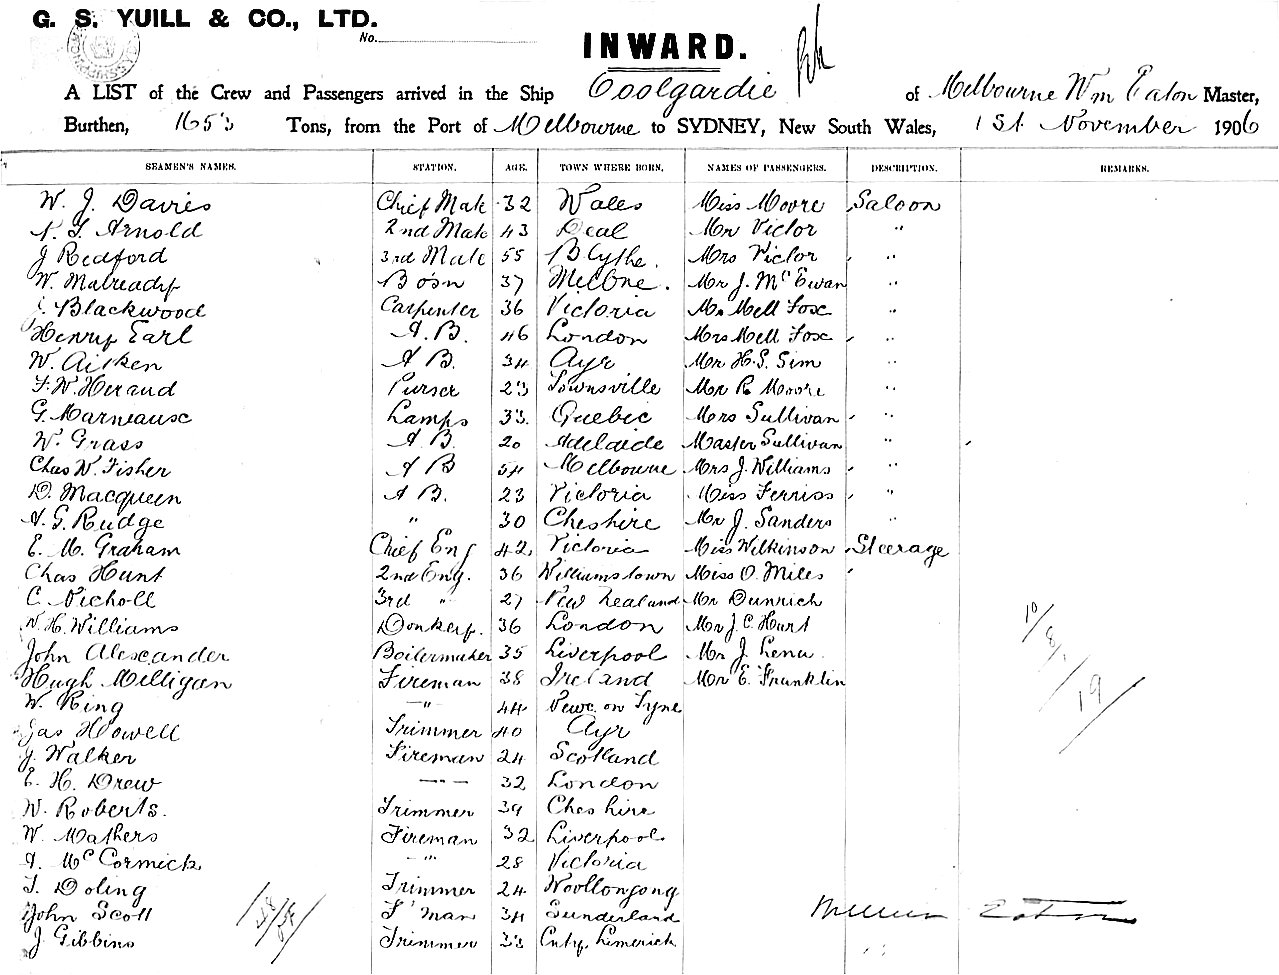 G. S. YUILL & CO., LTD.
No.
INWARD.
A LIST of the Crew and Passengers arrived in the Ship Coolgardie of Melbourne Wm Eaton Master,
Burthen, 1653 Tons, from the Port of Melbourne to SYDNEY, New South Wales, 1st November 1906
SEAMEN'S NAMES. STATION. AGE. TOWN WHERE BORN. NAMES OF PASSENGERS. DESCRIPTION. REMARKS.
W. J. Davies Chief Mate 32 Wales Miss Moore Saloon
Arnold 2nd Mate 43 Deal Mr Victor "
J Redford 3rd Mate 55 Blythe. Mrs Victor "
W. Mulready Bo's'n 37 Melbne. Mr J. McEwan "
J. Blackwood Carpenter 36 Victoria Mr Mell Fox "
Henry Earl A. B. 46 London Mrs Mell Fox "
W. Aitken A B. 34 Ayr Mr H. S. Sim "
F. W. Heraud Purser 23 Townsville Mr R Moore "
G. Marneaux Lamps 33. Quebic Mrs Sullivan "
W. Grass A B. 20 Adelaide Master Sullivan "
Chas W. Fisher A B 54 Melbourne Mrs J. Williams "
D. Macqueen A B. 23 Victoria Miss Ferriss "
A. G. Rudge " 30 Cheshire Mr J. Sanders "
E. M. Graham Chief Eng 42 Victoria Miss Wilkinson Steerage
Chas Hunt 2nd Eng. 36 Williamstown Miss O. Miles "
C. Nicholl 3rd " 27 New Zealand Mr Dunrich
W. H. Williams Donkey. 36 London Mr J. C. Hurt
John Alexander Boilermaker 35 Liverpool Mr J. Lena
Hugh Milligan Fireman 38 Ireland Mr E. Franklin
W. King " 44 Newc. on Tyne
Jas Howell Trimmer 40 Ayr
J. Walker Fireman 24 Scotland
E. H. Drew " 32 London
W. Roberts. Trimmer 39 Cheshire
W. Mathers Fireman 32 Liverpool.
A. McCormick " 28 Victoria
T. Doling Trimmer 24 Woollongong
John Scott F'man 34 Sunderland
J. Gibbins Trimmer 33 Cnty. Limerick
William Eaton
10/8/19